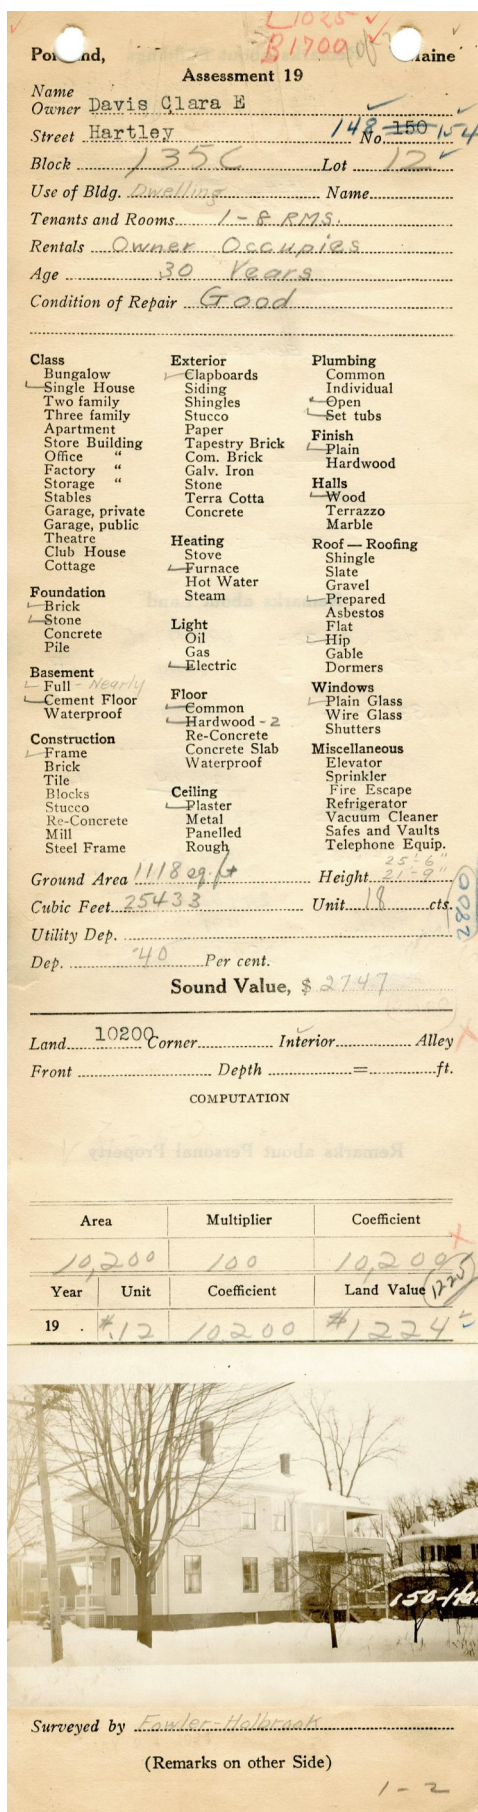 L1025
B1700
Portland, Maine
Assessment 19
Name
Owner Davis Clara E
Street Hartley No. 148 150 154
Block 135C Lot 12
Use of Bldg. Dwelling Name
Tenants and Rooms 1-8 RMS.
Rentals Owner Occupies
Age 30 Years
Condition of Repair Good
Class
Bungalow
Single House
Two family
Three family
Apartment
Store Building
Office "
Factory "
Storage "
Stables
Garage, private
Garage, public
Theatre
Club House
Cottage
Foundation
Brick
Stone
Concrete
Pile
Basement
Full - Nearly
Cement Floor
Waterproof
Construction
Frame
Brick
Tile
Blocks
Stucco
Re-Concrete
Mill
Steel Frame
Exterior
Clapboards
Siding
Shingles
Stucco
Paper
Tapestry Brick
Com. Brick
Galv. Iron
Stone
Terra Cotta
Concrete
Heating
Stove
Furnace
Hot Water
Steam
Light
Oil
Gas
Electric
Floor
Common
Hardwood - 2
Re-Concrete
Concrete Slab
Waterproof
Ceiling
Plaster
Metal
Panelled
Rough
Plumbing
Common
Individual
Open
Set tubs
Finish
Plain
Hardwood
Halls
Wood
Terrazzo
Marble
Roof — Roofing
Shingle
Slate
Gravel
Prepared
Asbestos
Flat
Hip
Gable
Dormers
Windows
Plain Glass
Wire Glass
Shutters
Miscellaneous
Elevator
Sprinkler
Fire Escape
Refrigerator
Vacuum Cleaner
Safes and Vaults
Telephone Equip.
25'-6"
Ground Area 1118 sq. ft Height 21'-9"
Cubic Feet 25433 Unit 18 cts.
2800
Utility Dep.
Dep. 40 Per cent.
Sound Value, $ 2747
Land 10200 Corner Interior Alley
Front Depth = ft.
COMPUTATION
Remarks about Personal Property
Area Multiplier Coefficient
10,200 100 10,200
Year Unit Coefficient Land Value 1225
19 . #.12 10200 #1224
150-Ha
Surveyed by Fowler-Holbrook
(Remarks on other Side)
1-2